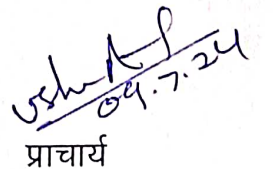 09.7.24
प्राचार्य